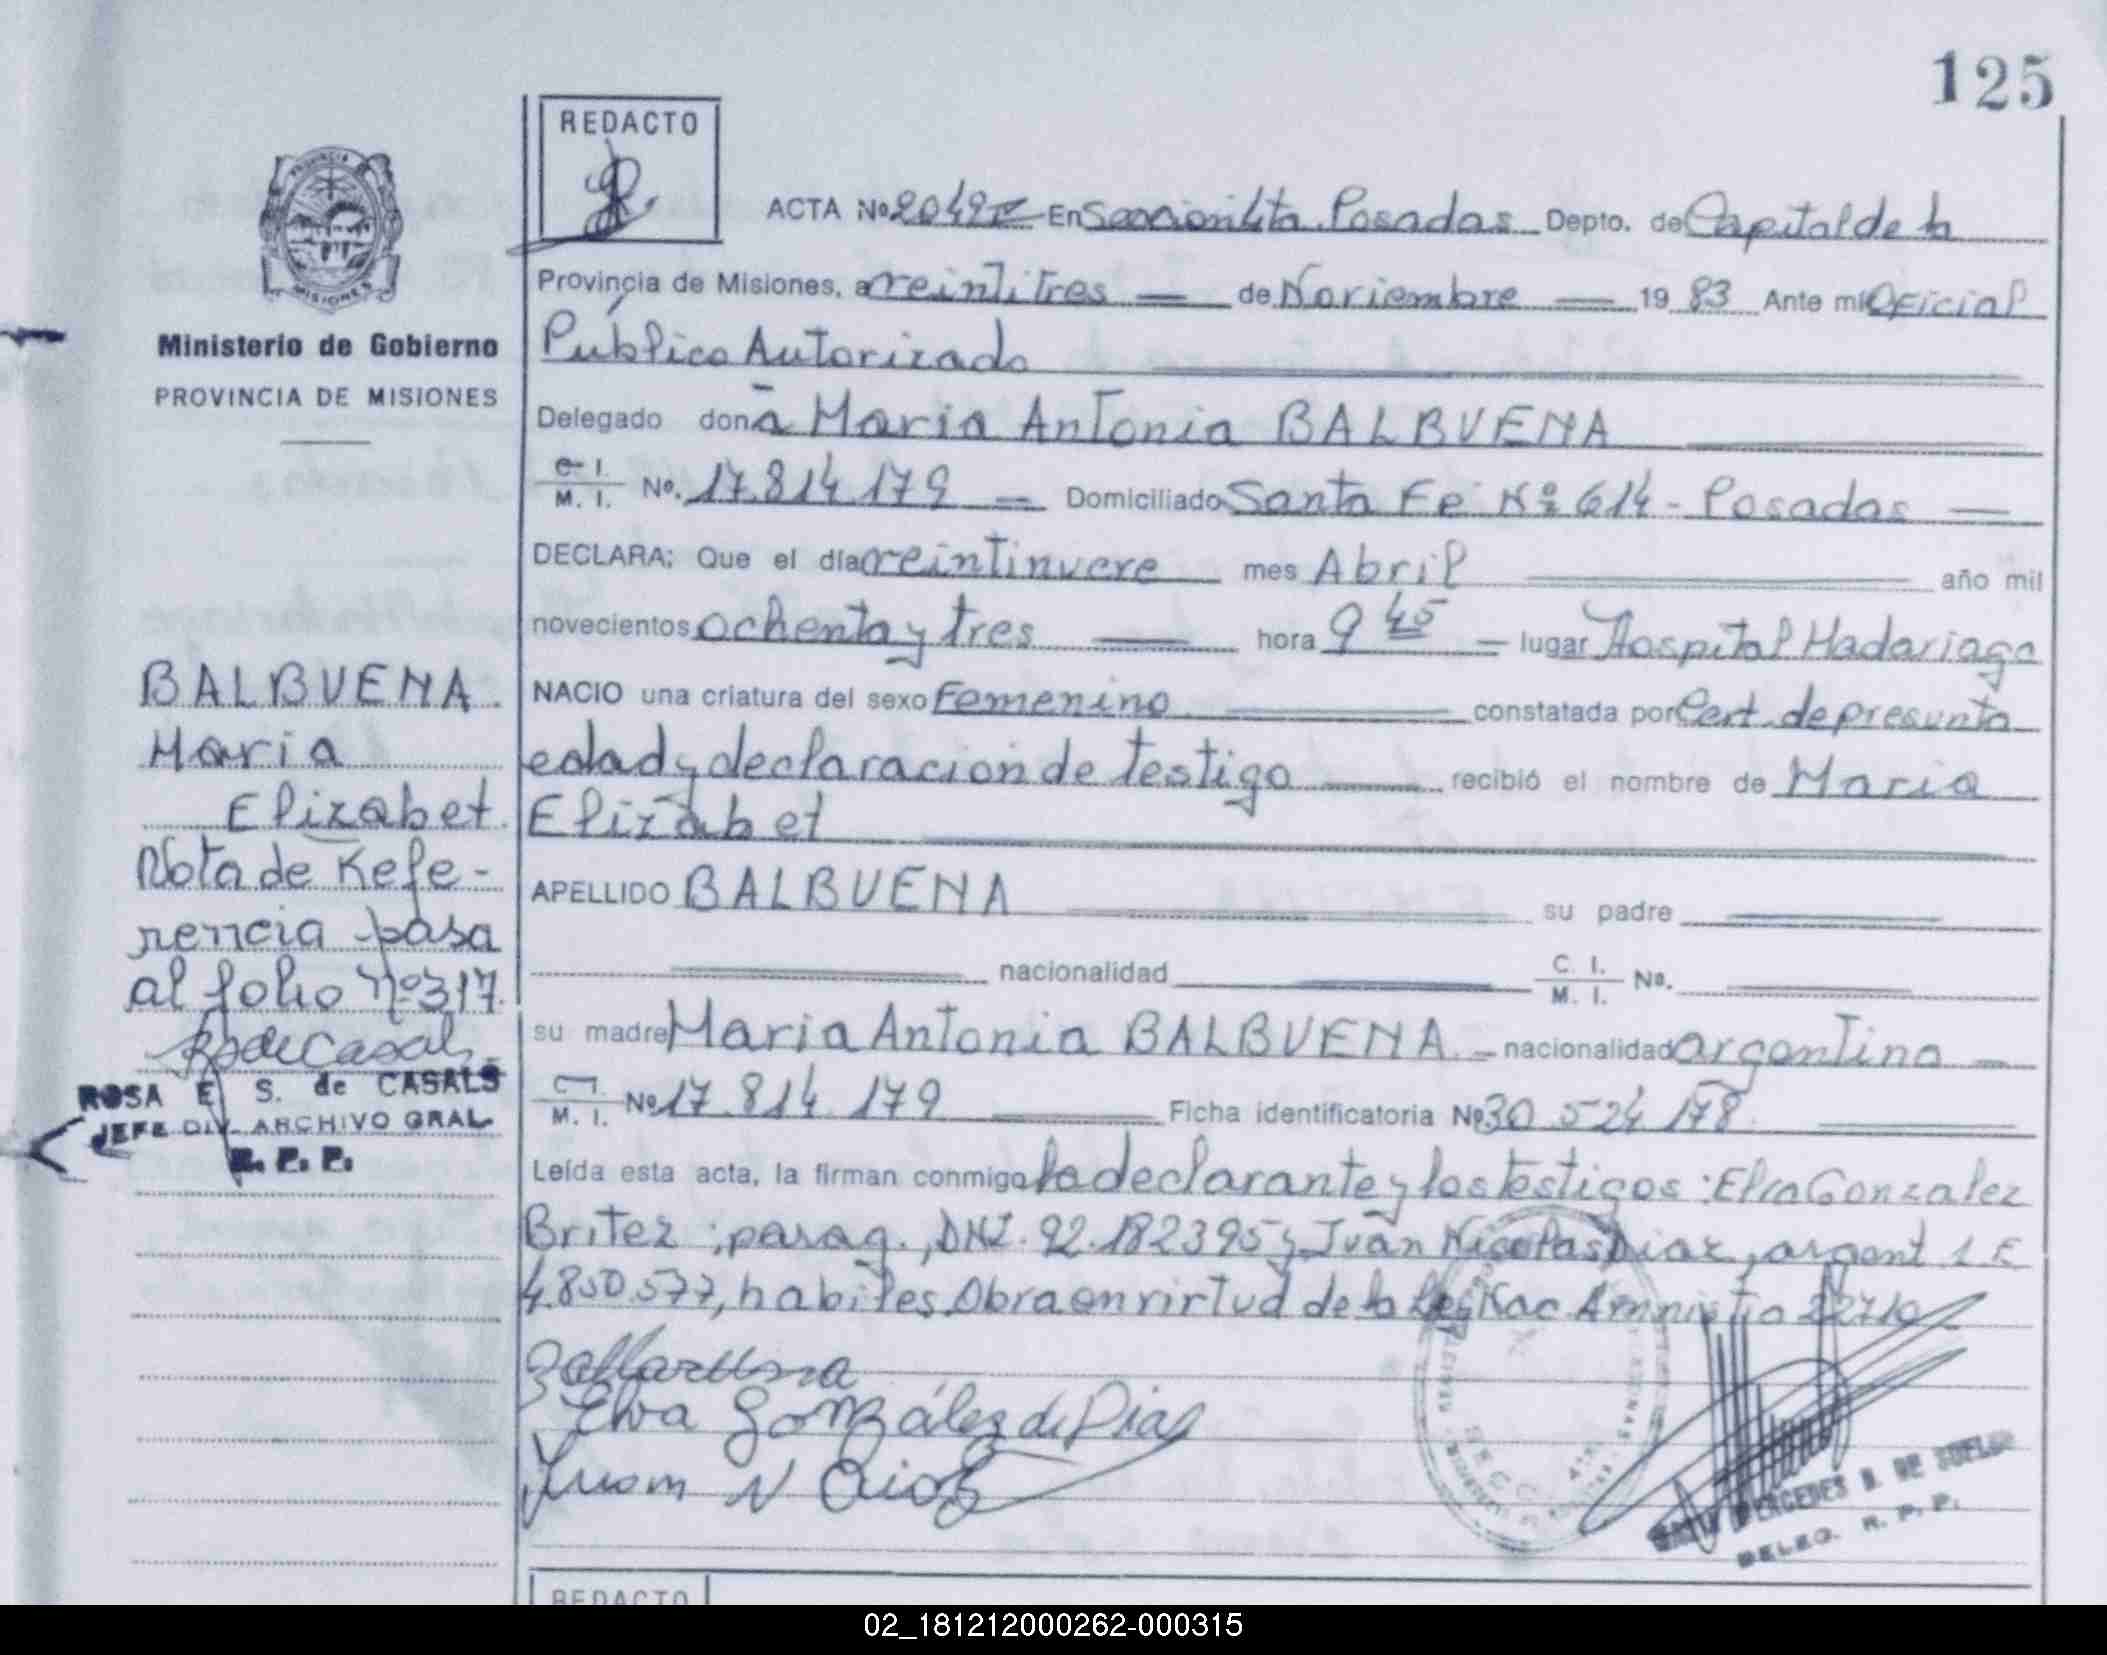 125
REDACTO
PROVINCIA
MISIONES
Ministerio de Gobierno
PROVINCIA DE MISIONES
ACTA No 2049 En Seccion 4ta Posadas Depto. de Capital de la
Provincia de Misiones, a veintitres de Noviembre 19 83 Ante mi Oficial
Público Autorizado
Delegado donã Maria Antonia BALBUENA
C. I. M. I. No. 17.814.179 Domiciliado Santa Fe Nº 614 - Posadas
DECLARA: Que el día veintinueve mes Abril año mil
novecientos ochenta y tres hora 9 45 lugar Hospital Madariaga
NACIO una criatura del sexo Femenino constatada por Cert. de presunta
edad y declaración de testigo recibió el nombre de Maria
Elizabet
APELLIDO BALBUENA su padre
nacionalidad C. I. M. I. No.
su madre Maria Antonia BALBUENA nacionalidad argentina
C. I. M. I. No 17.814.179 Ficha identificatoria No 30.524.178
Leída esta acta, la firman conmigo la declarante y los testigos: Elva Gonzalez
Britez ; parag., DNI. 92.182395 y Juan Nicolas Diaz, argent L E
4.850.577, habiles. Obra en virtud de la Ley Nac. Amnistia 22710
Elva González de Diaz
Juan N Diaz
MERCEDES
DELEG. R. P. P.
BALBUENA.
Maria
Elizabet.
Nota de Refe-
rencia pasa
al folio nº 317.
ROSA E. S. de CASALS
JEFE DIV. ARCHIVO GRAL
R. P. P.
REDACTO
02_181212000262-000315